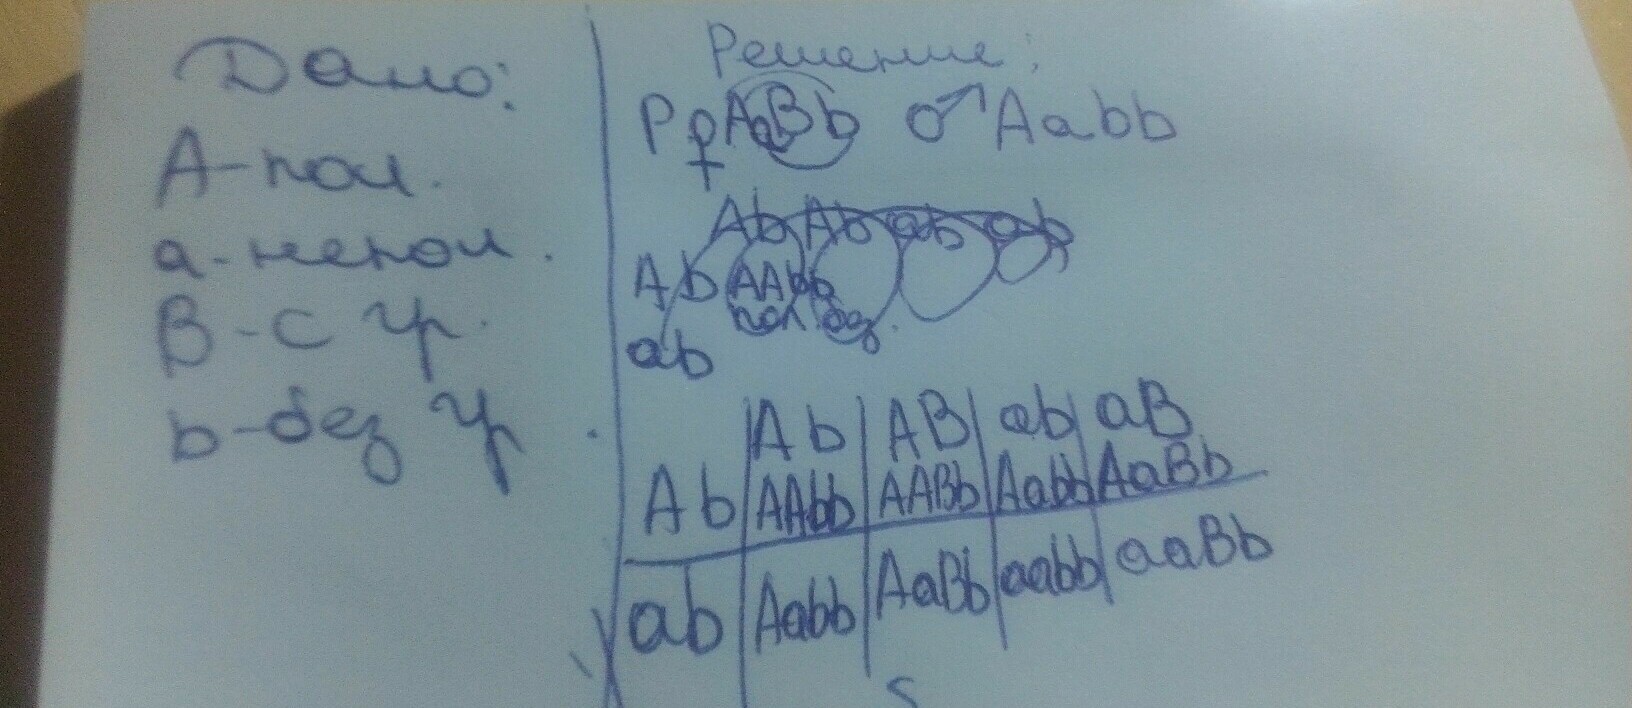 Дано:
А-пол.
а-непол.
В-с ур.
b-без ур.
Решение:
Р ♀АаВb ♂Ааbb
Аb Ab ab ab
Аb ААbb
пол без.
аb
Ab AB ab aB
Ab AAbb AABb Aabb AaBb
ab Aabb AaBb aabb aaBb